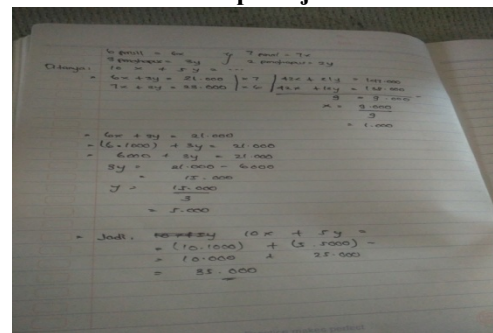 6 pensil = 6x 7 pensil = 7x
3 penghapus = 3y 2 penghapus = 2y
Ditanya: 10 x + 5 y = ...
= 6x + 3y = 21.000 = 7
7x + 2y = = 6
y = 9.000
x = 9.000
9
= 1.000
= 6x + 3y = 21.000
= (6.1000) + 3y = 21.000
= 6000 + 3y = 21.000
3y = 21.000 - 6000
= 15.000
y = 15.000
3
= 5.000
= Jadi, 10 x + 5 y =
= (10.1000) + (5.5000) =
= 10.000 + 25.000
= 35.000